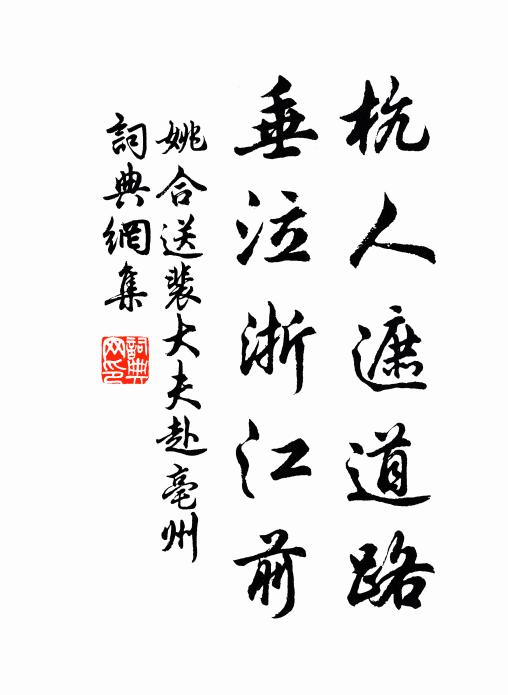 杭人遮道路
垂泣浙江前
姚合送裴大夫赴亳州
詞典網集
詞典网印